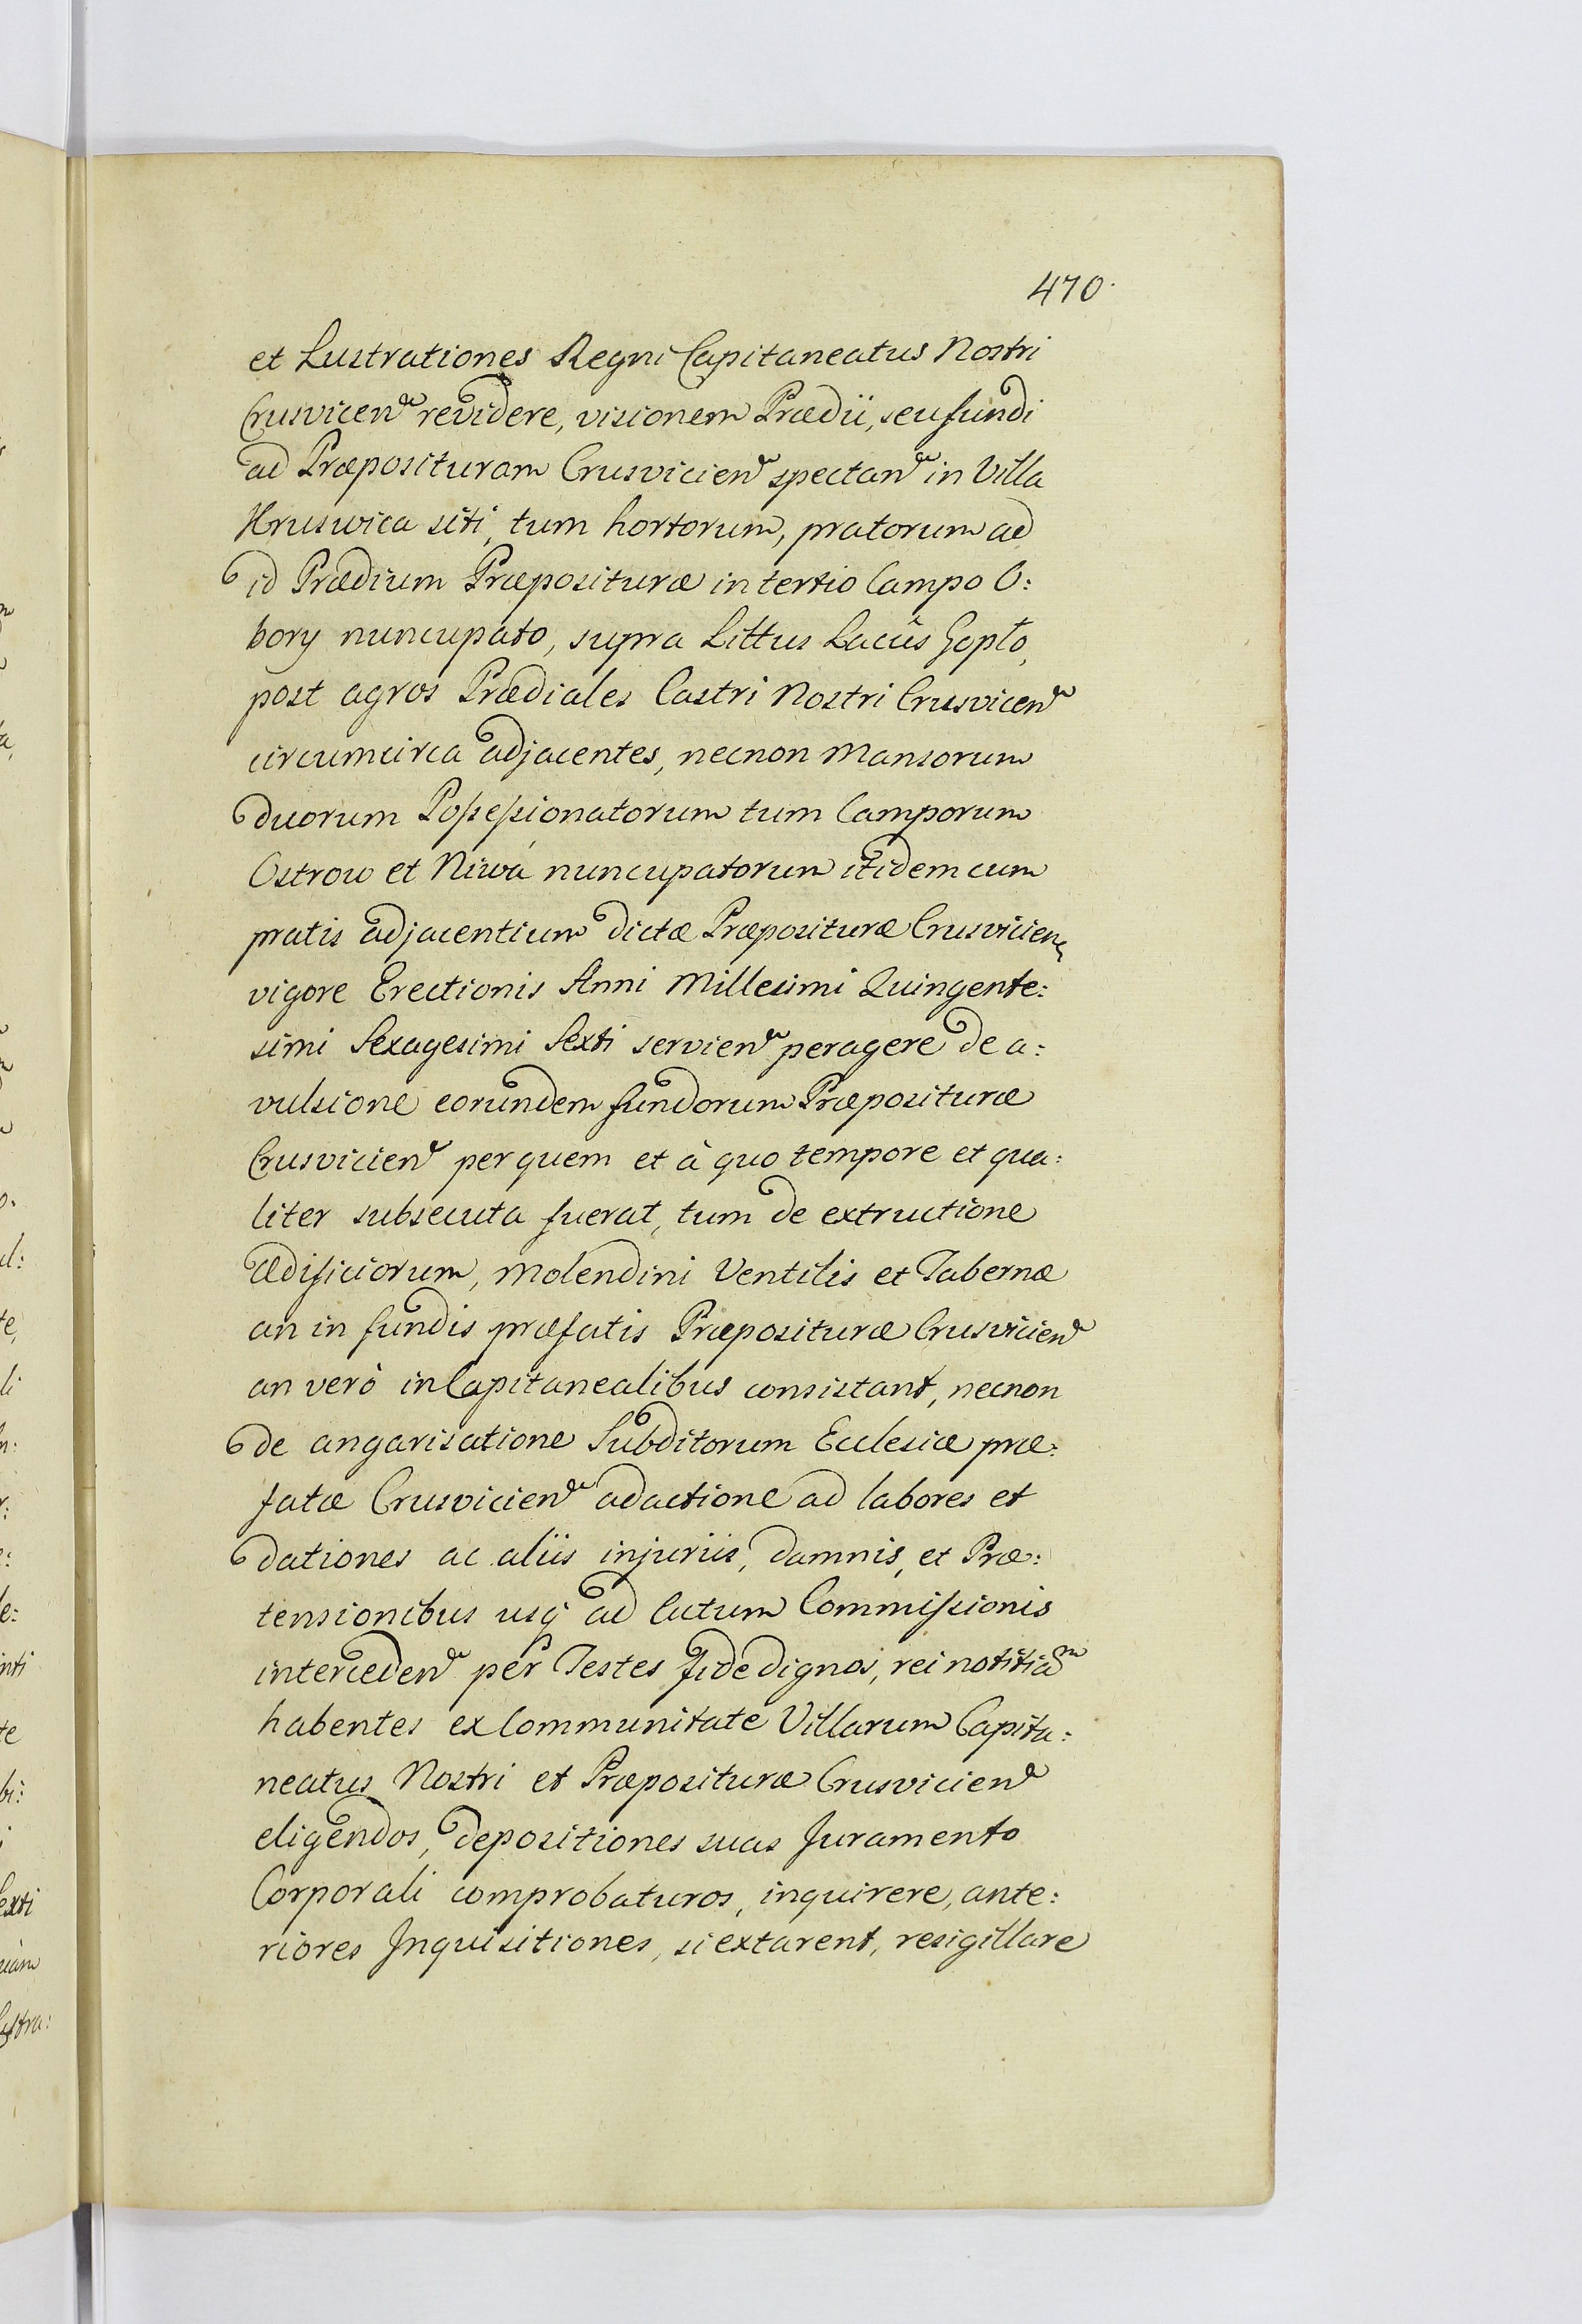 470.
et Lustrationes Regni Capitaneatus Nostri
Crusvicen revidere, visionem Prædii, seu fundi
ad Præposituram Crusvicien spectan in Villa
Kruswica siti, tum hortorum, pratorum ad
id Prædium Præposituræ in tertio Campo O:
bory nuncupato, supra Littus Lacûs Gopło,
post agros Prædiales Castri Nostri Crusvicen
circumcirca adjacentes, necnon Mansorum
duorum Possessionatorum tum Camporum
Ostrow et Niwá nuncupatorum itidem cum
pratis adjacentium dictæ Præposituræ Crusvicien
vigore Erectionis Anni Millesimi Quingente:
simi Sexagesimi Sexti servien peragere de a:
vulsione eorundem fundorum Præposituræ
Crusvicien per quem et à quo tempore et qua:
liter subsecuta fuerat, tum de extructione
ædificiorum, Molendini Ventilis et Tabernæ
an in fundis præfatis Præposituræ Crusvicien
an verò in Capitanealibus consistant, necnon
de angarisatione Subditorum Ecclesiæ præ:
fatæ Crusvicien adactione ad labores et
dationes ac aliis injuriis, damnis, et Præ:
tensionibus usq ad actum Commissionis
interceden per Testes fide dignos, rei notitiam
habentes ex Communitate Villarum Capita:
neatus Nostri et Præposituræ Crusvicien
eligendos, depositiones suas Juramento
Corporali comprobaturos, inquirere, ante:
riores Inquisitiones, si extarent, resigillare